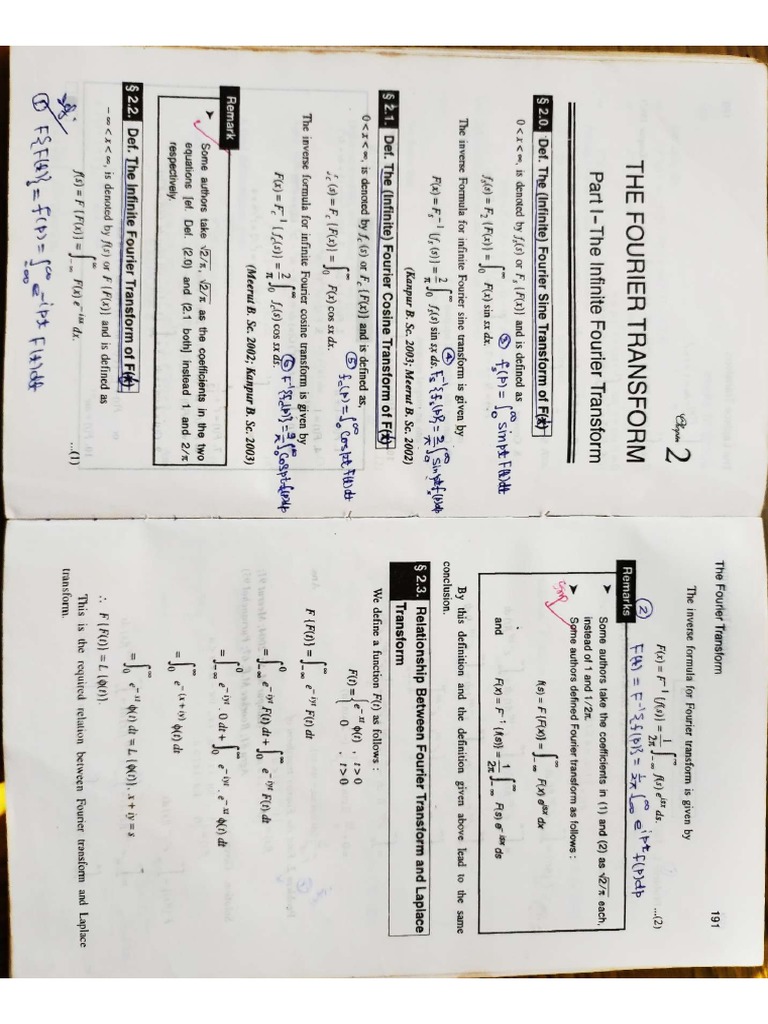 Chapter 2
THE FOURIER TRANSFORM
Part I-The Infinite Fourier Transform
§ 2.0. Def. The (Infinite) Fourier Sine Transform of F(x)
0 < x < ∞, is denoted by fₛ(s) or Fₛ {F(x)} and is defined as
fₛ(s) = F₂ {F(x)} = ∫₀^∞ F(x) sin sx dx.
③ fₛ(p) = ∫₀^∞ sin pt F(t) dt
The inverse Formula for infinite Fourier sine transform is given by
F(x) = Fₛ⁻¹ {fₛ(s)} = 2/π ∫₀^∞ fₛ(s) sin sx ds.
④ Fₛ⁻¹{fₛ(p)} = 2/π ∫₀^∞ sin pt fₛ(p) dp
(Kanpur B. Sc. 2003; Meerut B. Sc. 2002)
§ 2.1. Def. The (Infinite) Fourier Cosine Transform of F(x)
0 < x < ∞, is denoted by f_c (s) or F_c {F(x)} and is defined as,
f_c (s) = F_c {F(x)} = ∫₀^∞ F(x) cos sx dx.
⑤ f_c(p) = ∫₀^∞ Cos pt F(t) dt
The inverse formula for infinite Fourier cosine transform is given by
F(x) = F_c⁻¹ {f_c(s)} = 2/π ∫₀^∞ f_c(s) cos sx ds.
⑥ F⁻¹{f_c(p)} = 2/π ∫₀^∞ Cos pt f_c(p) dp
(Meerut B. Sc. 2002; Kanpur B. Sc. 2003)
Remark
➤ Some authors take √2/π, √2/π as the coefficients in the two
equations [ef. Def. (2.0) and (2.1 both] instead 1 and 2/π
respectively.
§ 2.2. Def. The Infinite Fourier Transform of F(x)
– ∞ < x < ∞, is denoted by f(s) or F {F(x)} and is defined as
f(s) = F {F(x)} = ∫₋∞^∞ F(x) e⁻ⁱˢˣ dx. ...(1)
① F{F(t)} = f(p) = ∫₋∞^∞ e⁻ⁱᵖᵗ F(t) dt
The Fourier Transform 191
The inverse formula for Fourier transform is given by
F(x) = F⁻¹ {f(s)} = 1/2π ∫₋∞^∞ f(s) eⁱˢˣ ds. ...(2)
② F(t) = F⁻¹{f(p)} = 1/2π ∫₋∞^∞ eⁱᵖᵗ f(p) dp
Remarks
➤ Some authors take the coefficients in (1) and (2) as √2/π each,
instead of 1 and 1/2π.
Imp
➤ Some authors defined Fourier transform as follows :
f(s) = F {F(x)} = ∫₋∞^∞ F(x) eⁱˢˣ dx
and F(x) = F⁻¹ {f(s)} = 1/2π ∫₋∞^∞ F(s) e⁻ⁱˢˣ ds
By this definition and the definition given above lead to the same
conclusion.
§ 2.3. Relationship Between Fourier Transform and Laplace
Transform
We define a function F(t) as follows :
F(t) = { e⁻ˣᵗ ϕ(t) , t > 0
0 , t > 0
F {F(t)} = ∫₋∞^∞ e⁻ⁱʸᵗ F(t) dt
= ∫₋∞^0 e⁻ⁱʸᵗ F(t) dt + ∫₀^∞ e⁻ⁱʸᵗ F(t) dt
= ∫₋∞^0 e⁻ⁱʸᵗ . 0 dt + ∫₀^∞ e⁻ⁱʸᵗ . e⁻ˣᵗ ϕ(t) dt
= ∫₀^∞ e⁻⁽ˣ⁺ⁱʸ⁾ᵗ ϕ(t) dt
= ∫₀^∞ e⁻ˢᵗ ϕ(t) dt = L {ϕ(t)} . x + iy = s
∴ F {F(t)} = L {ϕ(t)}.
This is the required relation between Fourier transform and Laplace
transform.